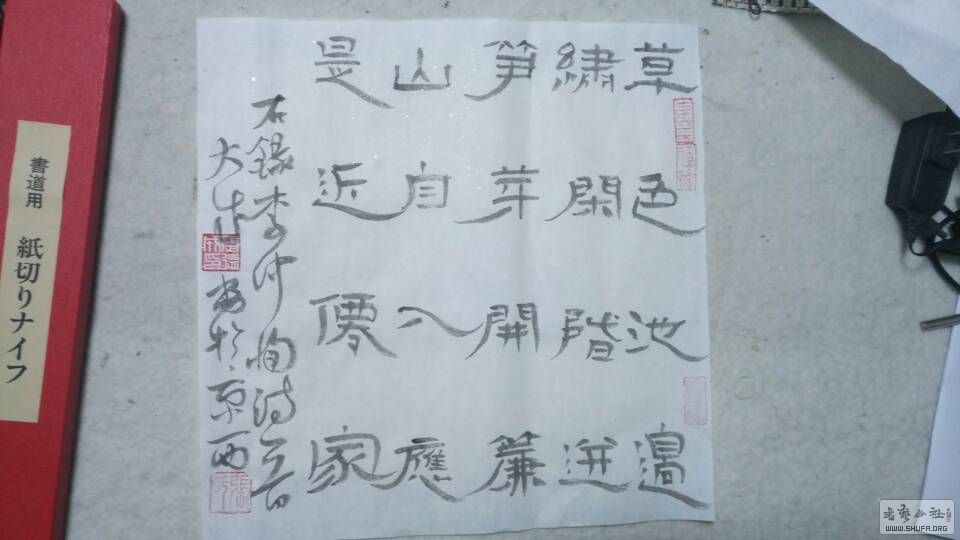 草色池邊
繡閑階迸
笋芽開簾
山自入應
是近僊家
右錄李仲恂詩一首
書於京西
書道用 紙切りナイフ
书艺公社
WWW.SHUFA.ORG